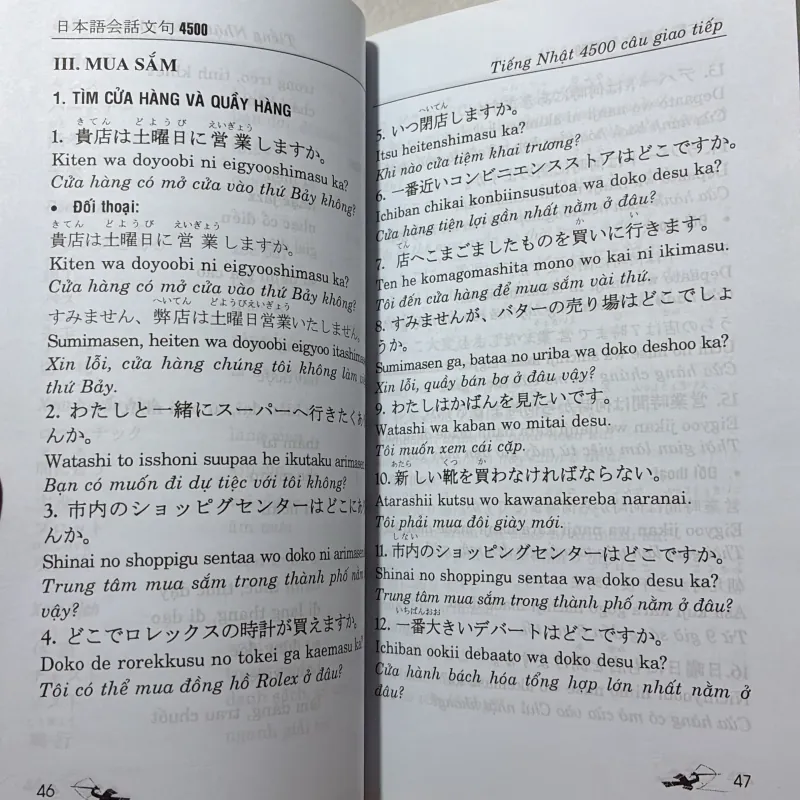 日本語会話文句 4500
III. MUA SẮM
1. TÌM CỬA HÀNG VÀ QUẦY HÀNG
きてん どようび えいぎょう
1. 貴店は土曜日に営業しますか。
Kiten wa doyoobi ni eigyooshimasu ka?
Cửa hàng có mở cửa vào thứ Bảy không?
• Đối thoại:
きてん どようび えいぎょう
貴店は土曜日に営業しますか。
Kiten wa doyoobi ni eigyooshimasu ka?
Cửa hàng có mở cửa vào thứ Bảy không?
へいてん どようびえいぎょう
すみません、弊店は土曜日営業いたしません。
Sumimasen, heiten wa doyoobi eigyoo itashimasen
Xin lỗi, cửa hàng chúng tôi không làm
thứ Bảy.
2. わたしと一緒にスーパーへ行きたくあ
んか。
Watashi to isshoni suupaa he ikutaku arimasen
Bạn có muốn đi dự tiệc với tôi không?
3. 市内のショッピグセンターはどこにあ
んか。
Shinai no shoppigu sentaa wo doko ni arimasen
Trung tâm mua sắm trong thành phố nằm
vậy?
4. どこでロレックスの時計が買えますか。
Doko de rorekkusu no tokei ga kaemasu ka?
Tôi có thể mua đồng hồ Rolex ở đâu?
46
Tiếng Nhật 4500 câu giao tiếp
へいてん
5. いつ閉店しますか。
Itsu heitenshimasu ka?
Khi nào cửa tiệm khai trương?
6. 一番近いコンビニエンスストアはどこですか。
Ichiban chikai konbiinsusutoa wa doko desu ka?
Cửa hàng tiện lợi gần nhất nằm ở đâu?
てん か い
7. 店へこまごましたものを買いに行きます。
Ten he komagomashita mono wo kai ni ikimasu.
Tôi đến cửa hàng để mua sắm vài thứ.
8. すみませんが、バターの売り場はどこでしょ
うか。
Sumimasen ga, bataa no uriba wa doko deshoo ka?
Xin lỗi, quầy bán bơ ở đâu vậy?
9. わたしはかばんを見たいです。
Watashi wa kaban wo mitai desu.
Tôi muốn xem cái cặp.
あたら くつ か
10. 新しい靴を買わなければならない。
Atarashii kutsu wo kawanakereba naranai.
Tôi phải mua đôi giày mới.
しない
11. 市内のショッピングセンターはどこですか。
Shinai no shoppingu sentaa wa doko desu ka?
Trung tâm mua sắm trong thành phố nằm ở đâu?
いちばんおお
12. 一番大きいデパートはどこですか。
Ichiban ookii debaato wa doko desu ka?
Cửa hành bách hóa tổng hợp lớn nhất nằm ở
đâu?
47